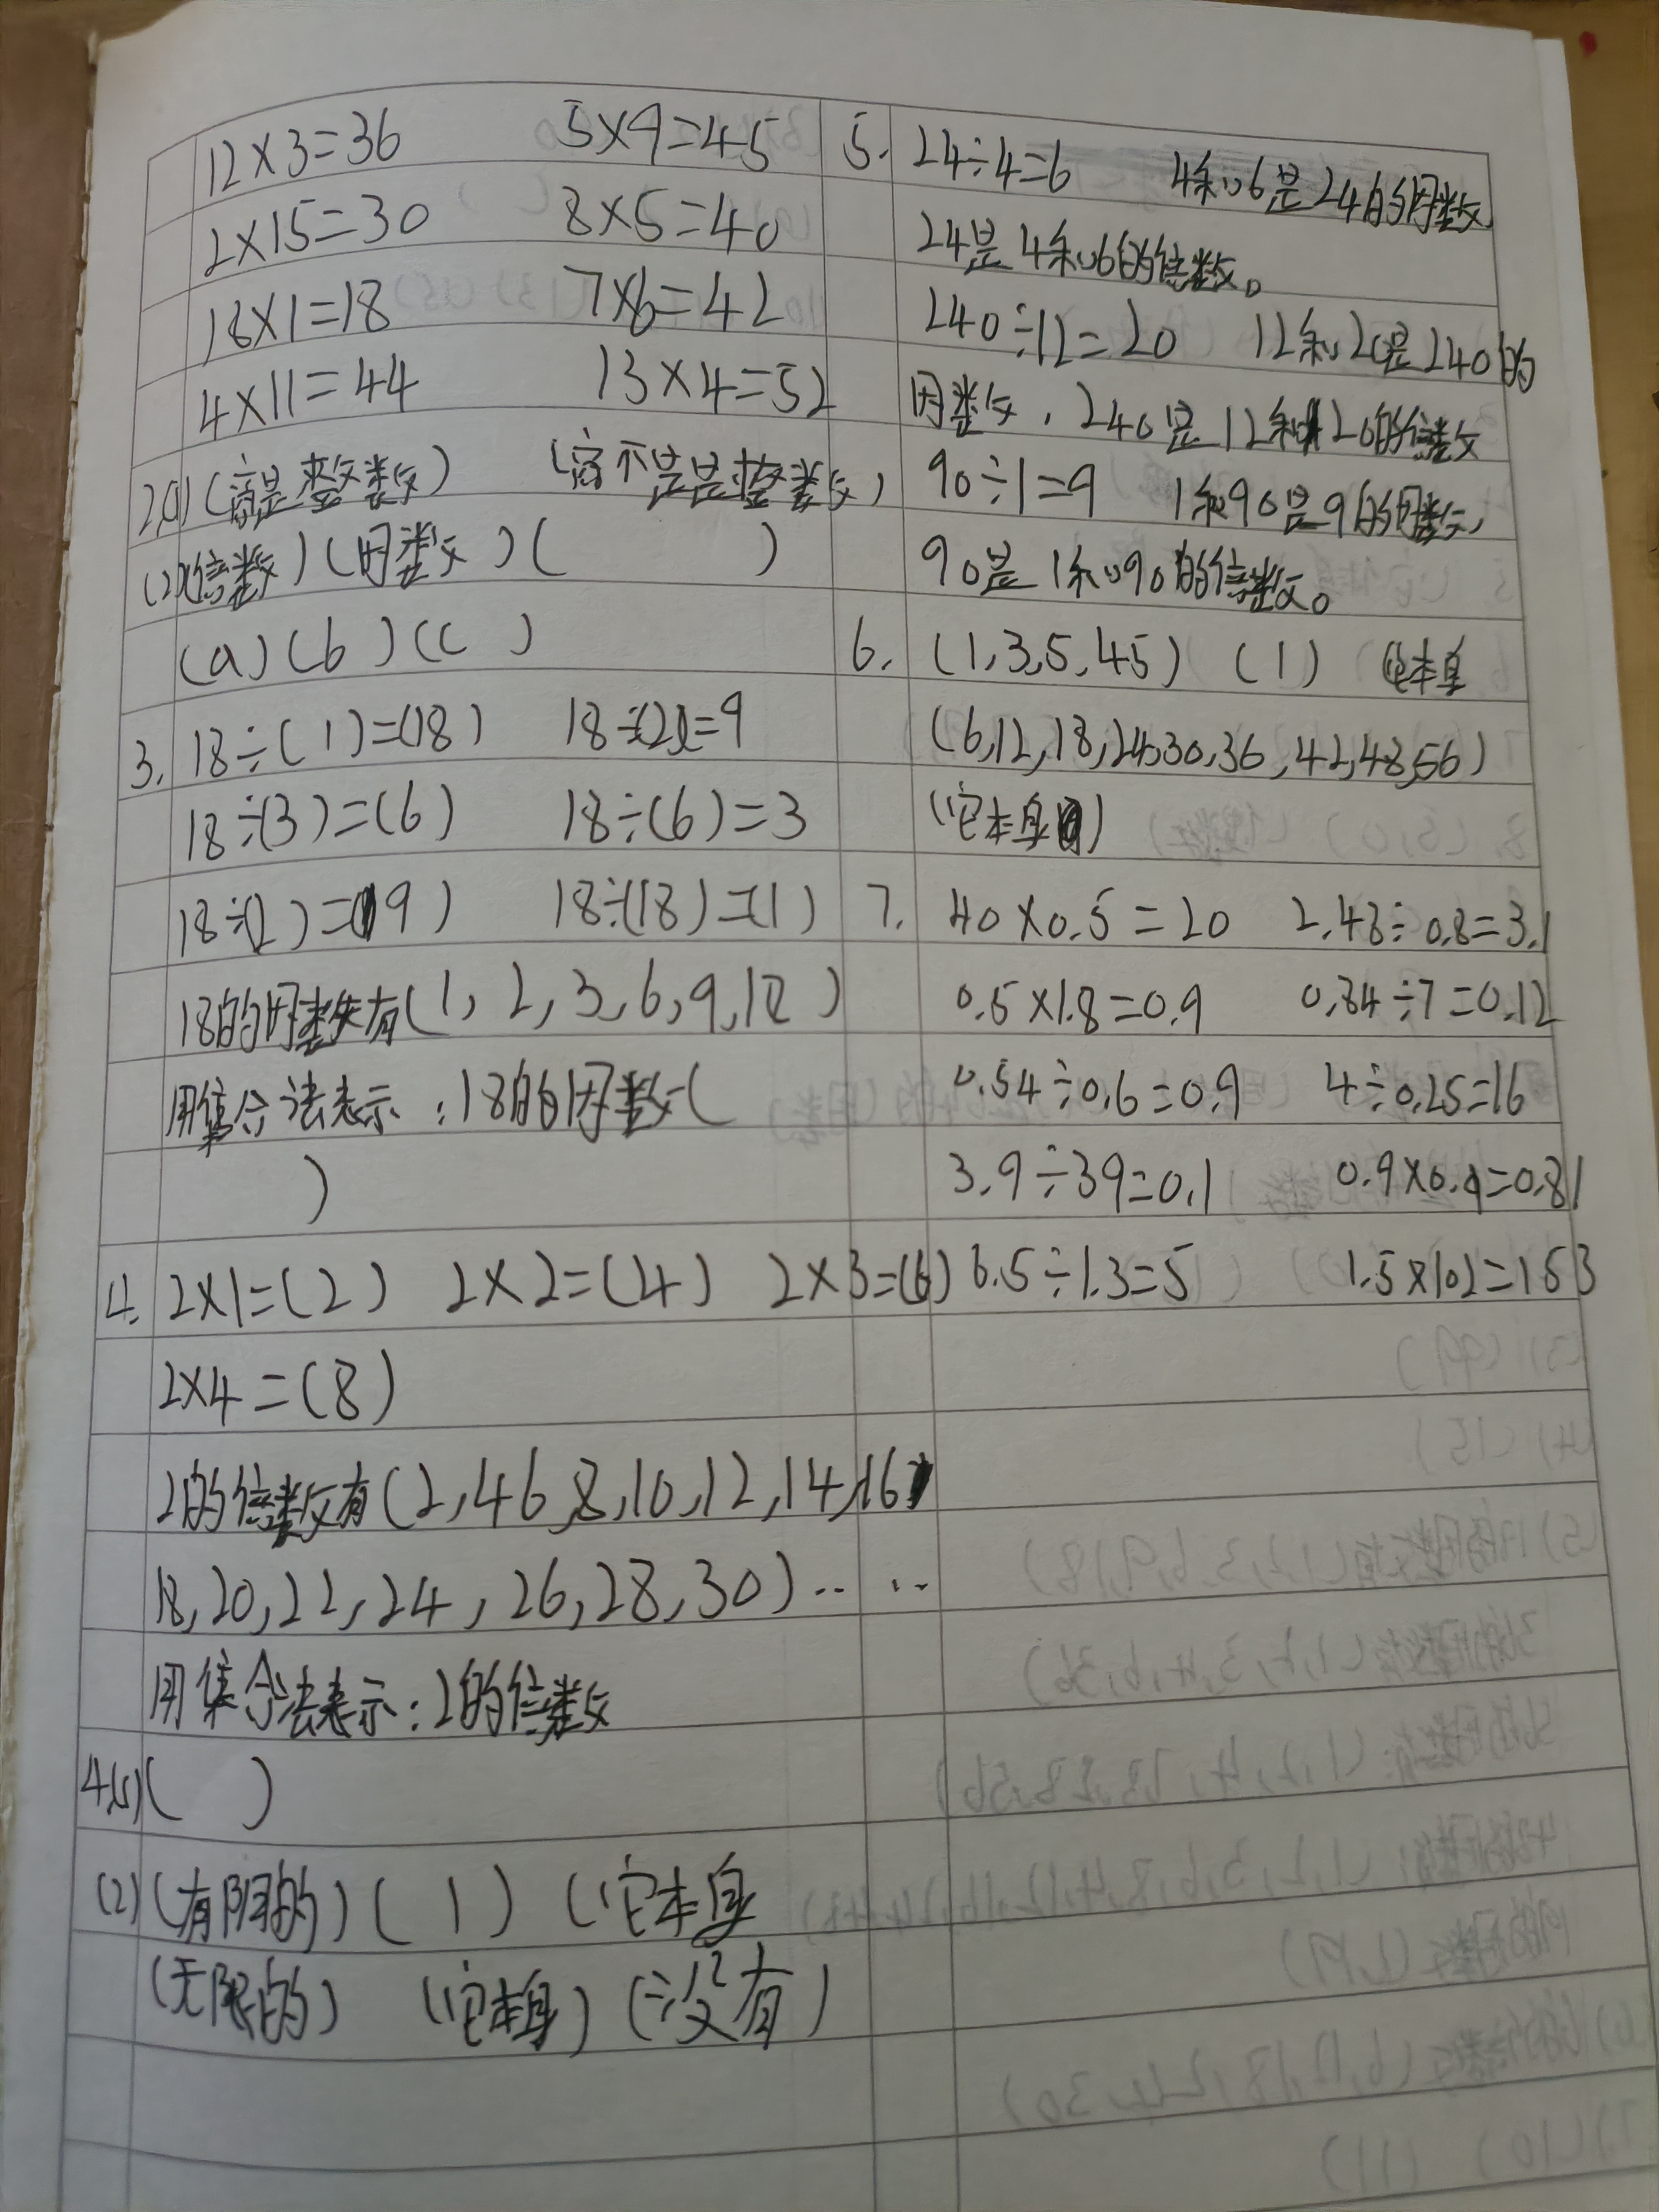 12×3=36 5×9=45
2×15=30 8×5=40
18×1=18 7×6=42
4×11=44 13×4=52
2.(1)(商是整数) (商不是是整数)
(2)(倍数)(因数)( )
(a)(b)(c)
3. 18÷(1)=(18) 18÷(2)=9
18÷(3)=(6) 18÷(6)=3
18÷(2)=(9) 18÷(18)=(1)
18的因数有(1,2,3,6,9,18)
用集合法表示:18的因数(
)
4. 2×1=(2) 2×2=(4) 2×3=(6)
2×4=(8)
2的倍数有(2,4 6,8,10,12,14,16
18,20,22,24,26,28,30)‥ ‥
用集合法表示:2的倍数
4(1)( )
(2)(有限的)(1)(它本身
(无限的) (它本身)(没有)
5. 24÷4=6 4和6是24的因数
24是4和6的倍数。
240÷12=20 12和20是240的
因数,240是12和20的倍数
90÷1=9 1和90是9的因数,
90是1和90的倍数。
6. (1,3,5,45) (1) 它本身
(6,12,18,24,30,36,42,48,56)
(它本身)
7. 40×0.5=20 2.48÷0.8=3.1
0.5×1.8=0.9 0.84÷7=0.12
0.54÷0.6=0.9 4÷0.25=16
3.9÷39=0.1 0.9×0.9=0.81
6.5÷1.3=5 1.5×102=153